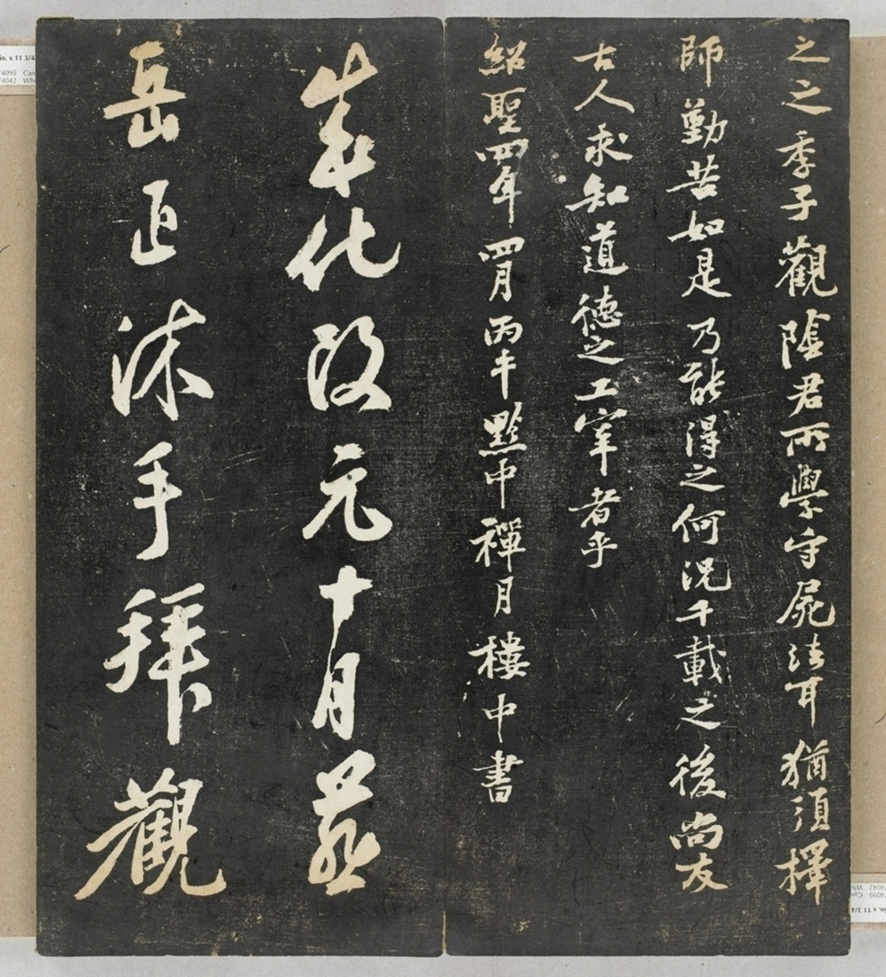 之之季子觀陰君所學守屍法耳猶須擇
師勤苦如是乃能得之何況千載之後尚友
古人求知道德之工宰者乎
紹聖四年四月丙午黔中禪月樓中書
成化改元十月燕
岳正沐手拜觀